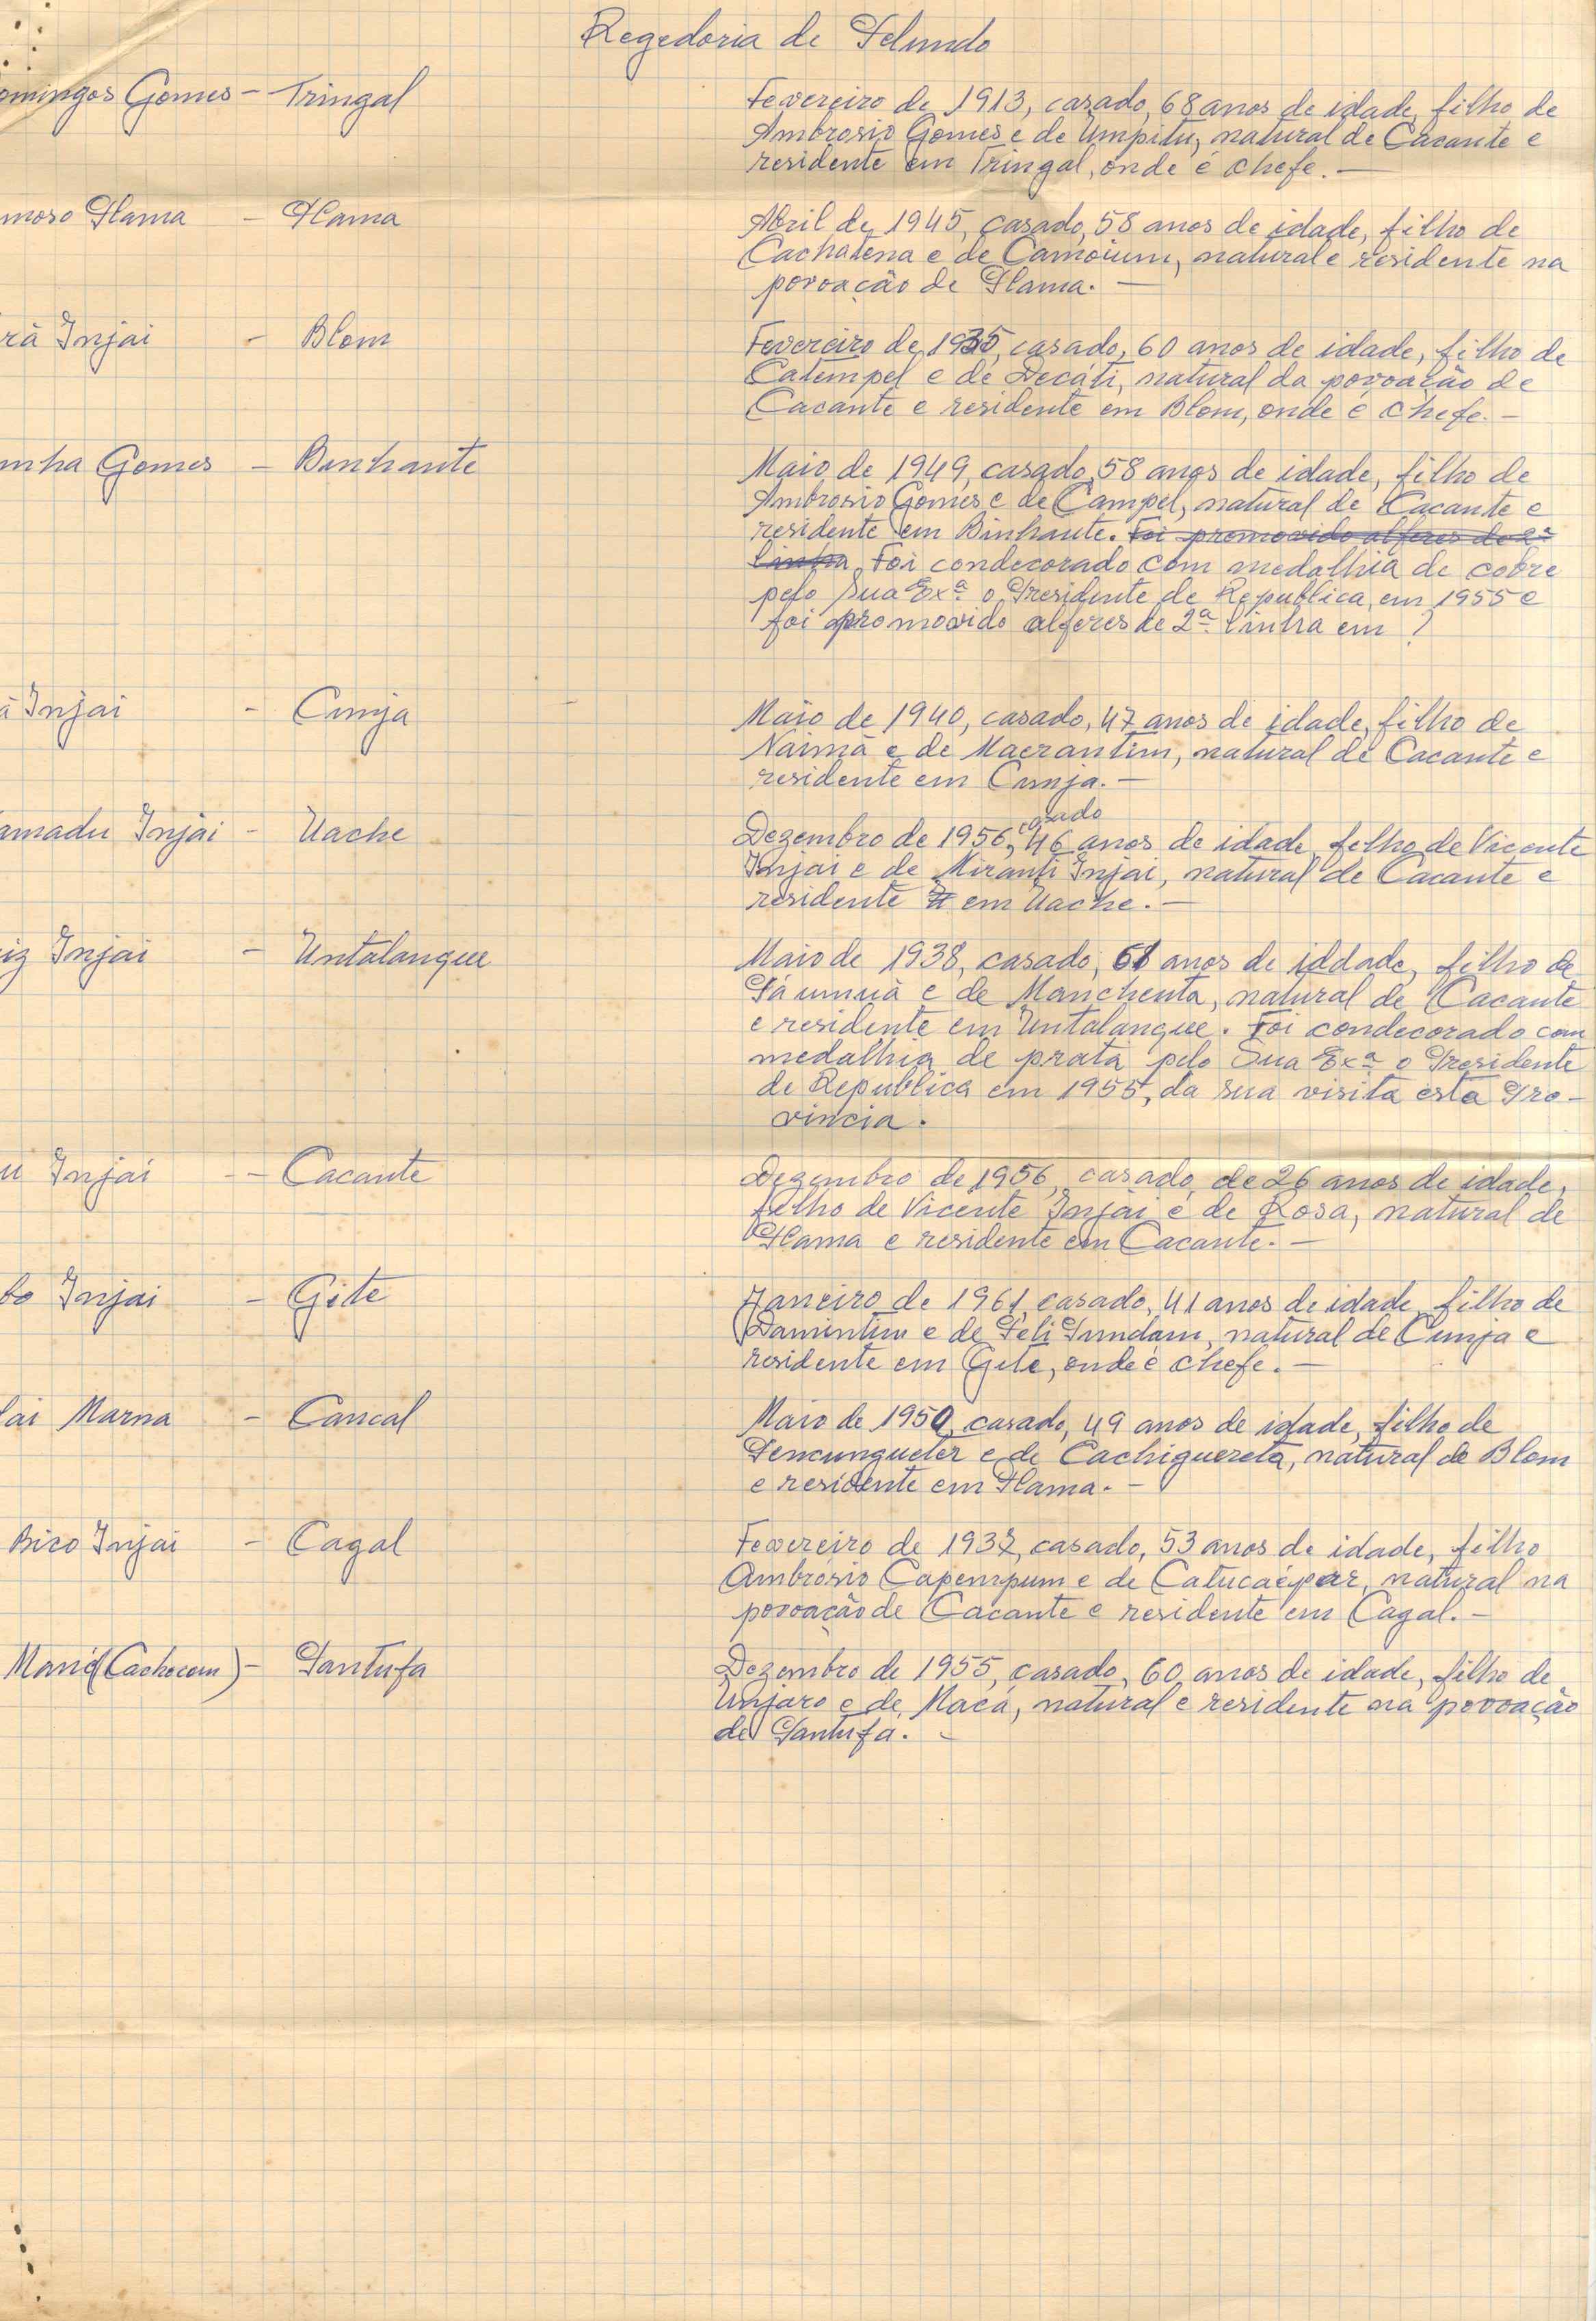 Regedoria de Pelundo
omingos Gomes - Tringal
Fevereiro de 1913, casado, 68 anos de idade, filho de
Ambrosio Gomes e de Umpitu, natural de Cacante e
residente em Tringal, onde é chefe. —
moso Plama - Plama
Abril de 1945, casado, 58 anos de idade, filho de
Cachatena e de Camoium, natural e residente na
povoação de Plama. —
rã Injai - Blom
Fevereiro de 1935, casado, 60 anos de idade, filho de
Catempel e de Decáti, natural da povoação de
Cacante e residente em Blom, onde é chefe. —
inha Gomes - Binhante
Maio de 1949, casado, 58 anos de idade, filho de
Ambrosio Gomes e de Campel, natural de Cacante e
residente em Binhante. Foi promovido alferes de 2ª
linha. Foi condecorado com medalhia de cobre
pelo Sua Exª o Presidente de Republica, em 1955 e
foi promovido alferes de 2ª linha em ?
ã Injai - Cunja
Maio de 1940, casado, 47 anos de idade, filho de
Naimã e de Macrantim, natural de Cacante e
residente em Cunja. —
casado
amadu Injai - Uache
Dezembro de 1956, 46 anos de idade, filho de Vicente
Injai e de Miranti Injai, natural de Cacante e
residente em Uache. —
iz Injai - Untalangue
Maio de 1938, casado, 61 anos de iddade, filho de
Páumuà e de Manchenta, natural de Cacante
e residente em Untalangue. Foi condecorado com
medalhia de prata pelo Sua Exª o Presidente
de Republica em 1955, da sua visita esta Pro-
vincia.
u Injai - Cacante
Dezembro de 1956, casado, de 26 anos de idade,
filho de Vicente Injai e de Rosa, natural de
Plama e residente em Cacante. —
bo Injai - Gite
Janeiro de 1961, casado, 41 anos de idade, filho de
Damintim e de Feli Pundam, natural de Cunja e
residente em Gite, onde é chefe. —
lai Marna - Cancal
Maio de 1950, casado, 49 anos de idade, filho de
Pencungueter e de Cachiguereta, natural de Blom
e residente em Plama. —
Bico Injai - Cagal
Fevereiro de 1932, casado, 53 anos de idade, filho
Ambrósio Capempum e de Catucaépar, natural na
povoação de Cacante e residente em Cagal. —
Mané (Cachocam) - Pantufa
Dezembro de 1955, casado, 60 anos de idade, filho de
Unjaro e de Macá, natural e residente na povoação
de Pantufa. -